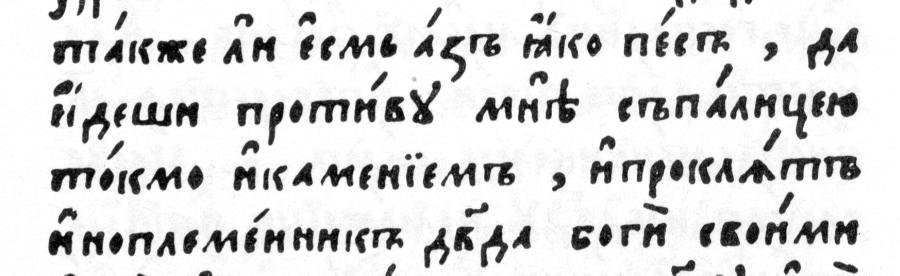 та́кже а̑и є̑смь а́зъ ꙗ̑ко пе́съ , да
и̑идеши проти́вꙋ мн̑ѣ съпа́лицею
то́кмо и̑каменїемъ , и̑прокла́тъ
и̑ноплеме́нникъ дв҃да боги̑ свои́ми